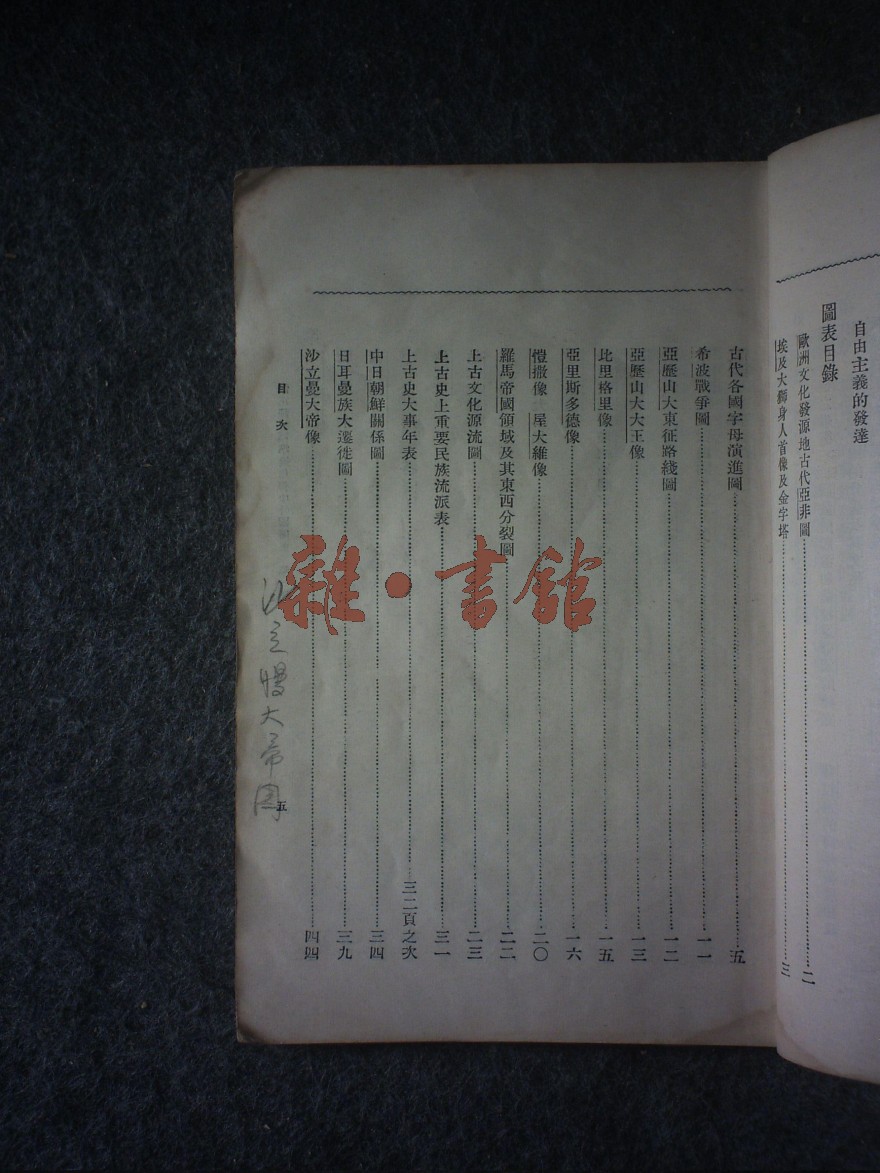 自由主義的發達
圖表目錄
歐洲文化發源地古代亞非圖……二
埃及大獅身人首像及金字塔……三
古代各國字母演進圖……五
希波戰爭圖……一一
亞歷山大東征路綫圖……一二
亞歷山大大王像……一三
比里格里像……一五
亞里斯多德像……一六
愷撒像 屋大維像……二〇
羅馬帝國領域及其東西分裂圖……二二
上古文化源流圖……二三
上古史上重要民族流派表……三一
上古史大事年表……三二頁之次
中日朝鮮關係圖……三四
日耳曼族大遷徙圖……三九
沙立曼大帝像……四四
目次
五
沙立曼大帝國
雜·書館